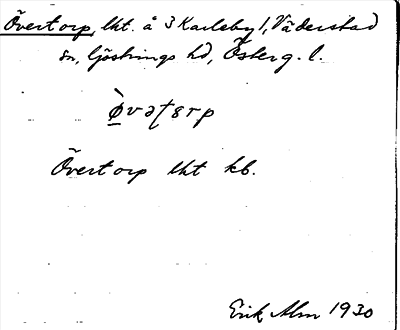 Övertorp, lht. å 3 Karleby 1, Väderstad
sn, Göstrings hd, Österg. l.
Övertorp lht kb.
Erik Alm 1930